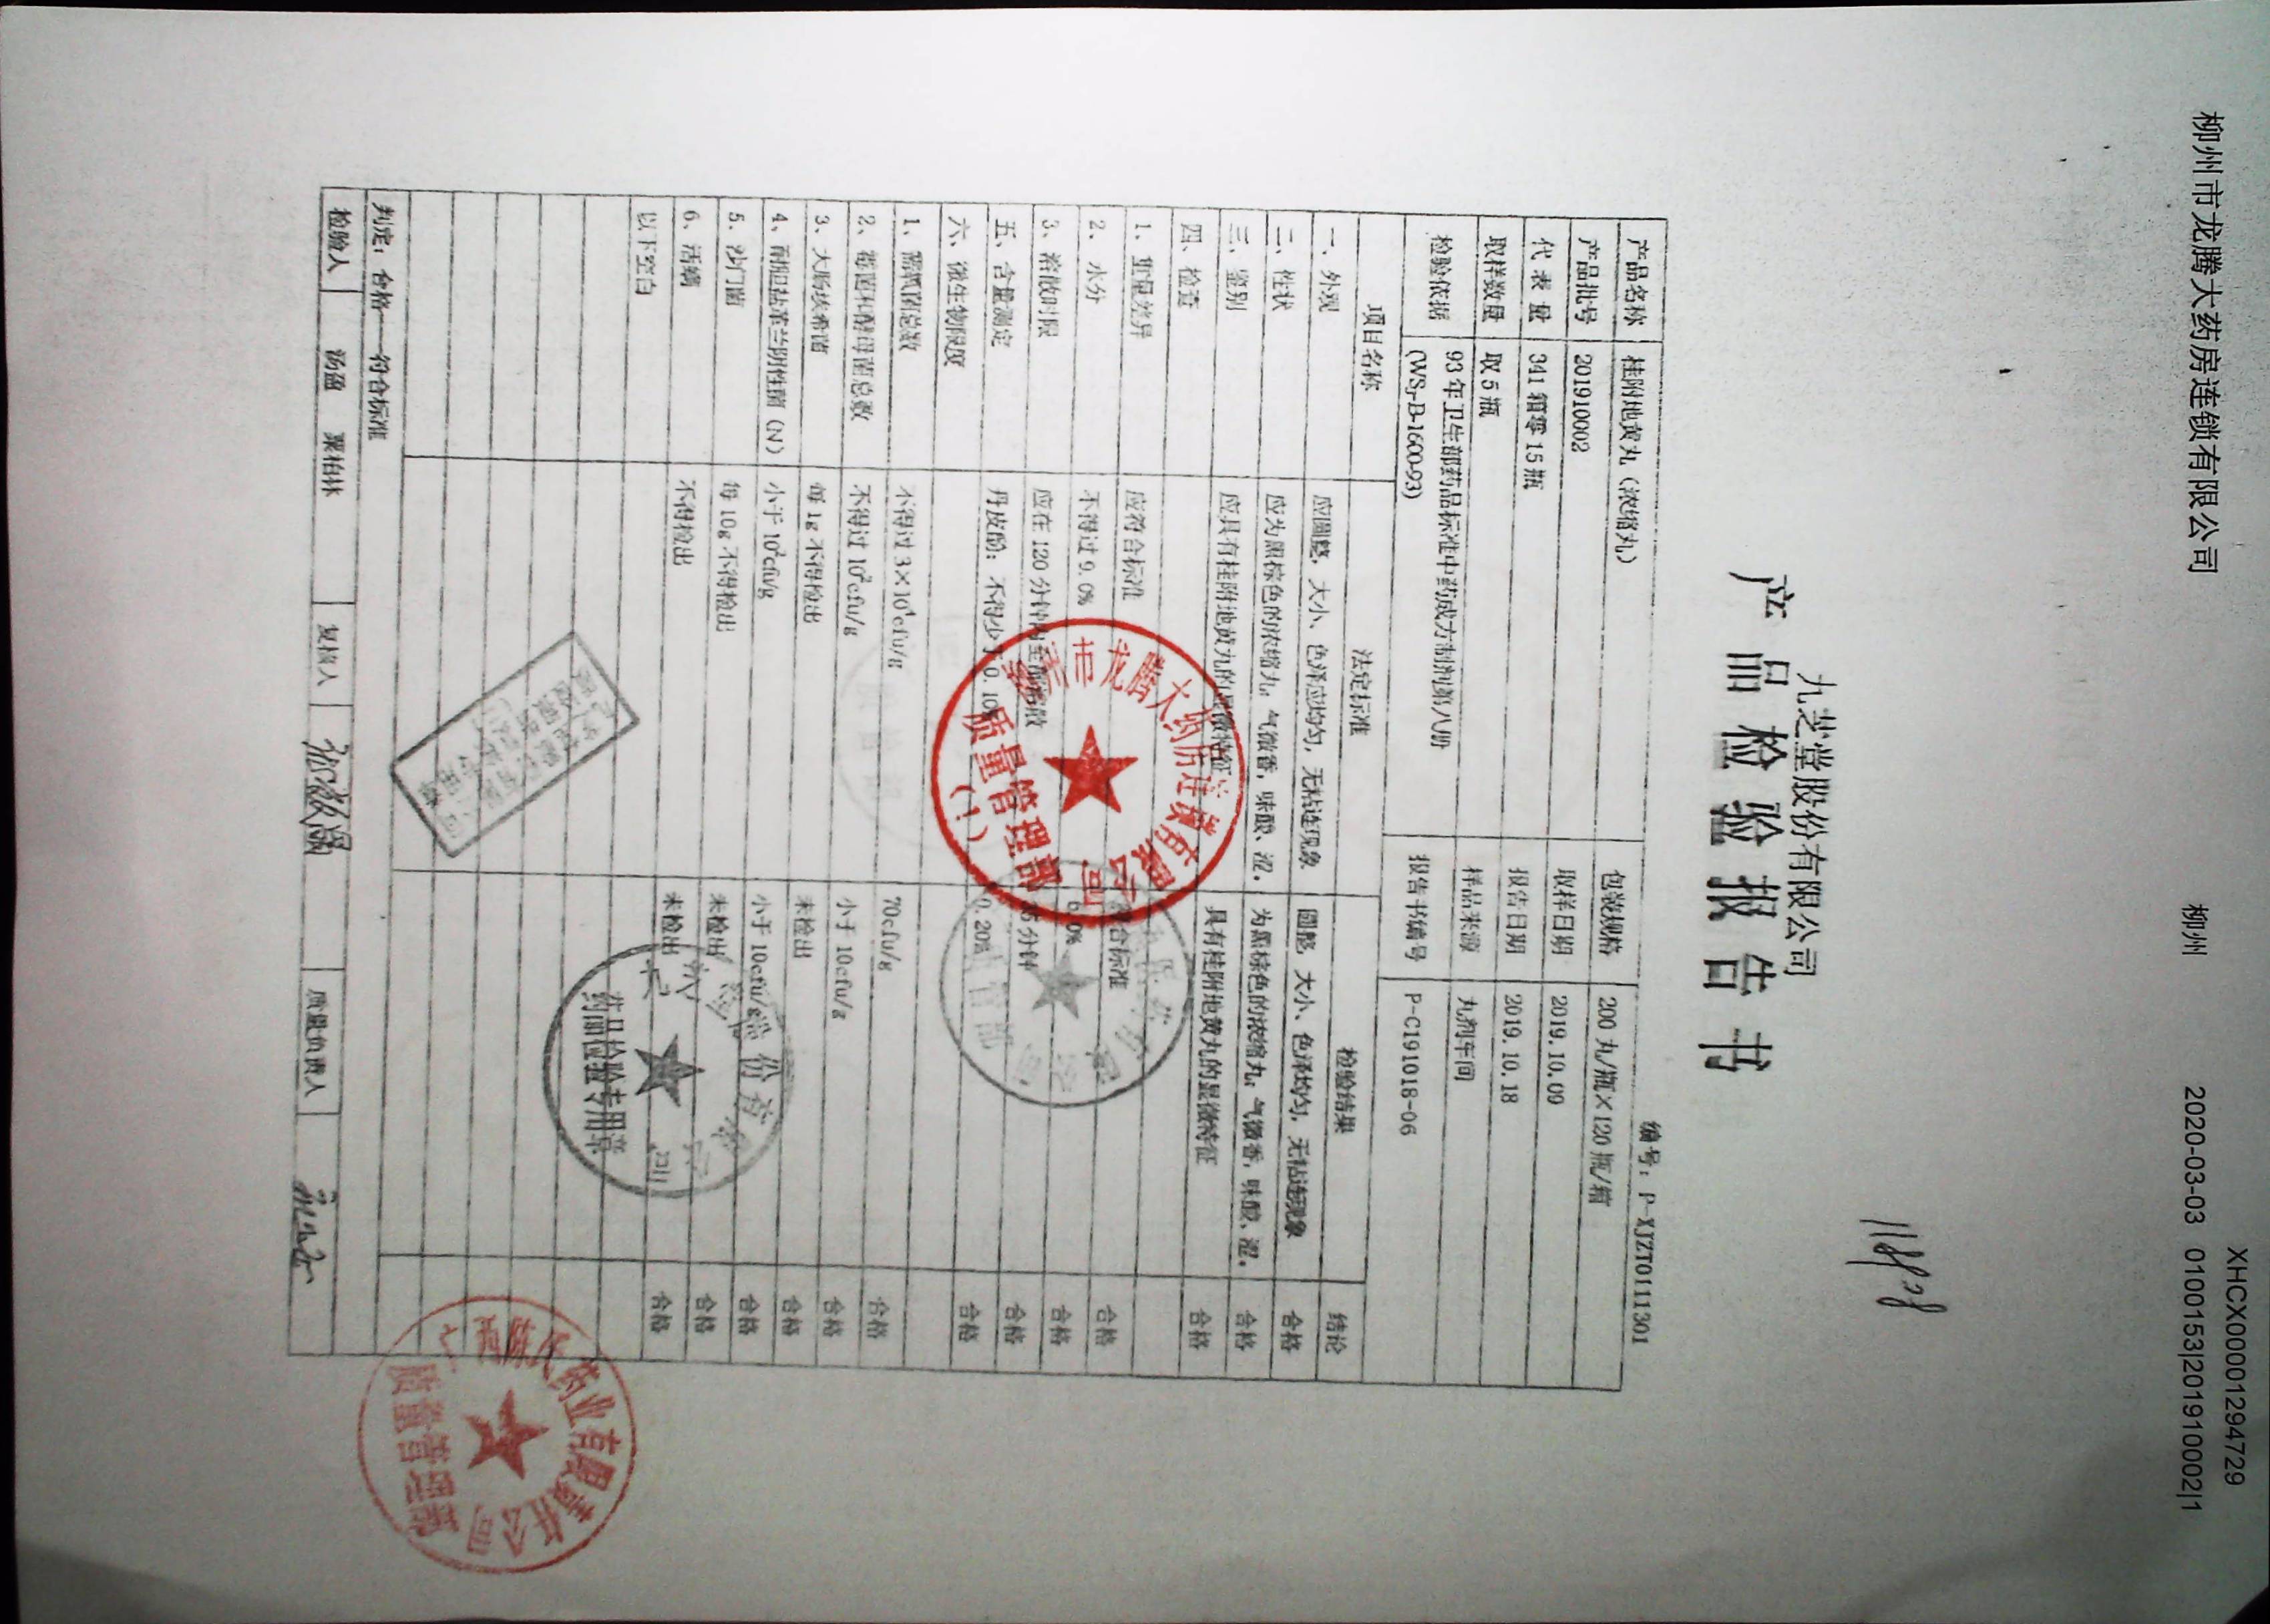 XHCX00001294729
柳州市龙腾大药房连锁有限公司 柳州 2020-03-03 0100153|201910002|1
九芝堂股份有限公司
产品检验报告书
编号：P-XJZT0111301
产品名称 桂附地黄丸（浓缩丸） 包装规格 200 丸/瓶×120 瓶/箱
产品批号 201910002 取样日期 2019.10.09
代表量 341 箱零 15 瓶 报告日期 2019.10.18
取样数量 取 5 瓶 样品来源 丸剂车间
检验依据 93 年卫生部药品标准中药成方制剂第八册 报告书编号 P-C191018-06
(WS₃-B-1600-93)
项目名称 法定标准 检验结果 结论
一、外观 应圆整，大小、色泽应均匀，无粘连现象 圆整，大小、色泽均匀，无粘连现象 合格
二、性状 应为黑棕色的浓缩丸；气微香，味酸、涩。 为黑棕色的浓缩丸；气微香，味酸、涩。 合格
三、鉴别 应具有桂附地黄丸的显微特征 具有桂附地黄丸的显微特征 合格
四、检查
1、重量差异 应符合标准 符合标准 合格
2、水分 不得过 9.0% 合格
3、溶散时限 应在 120 分钟内全部溶散 分钟 合格
五、含量测定 丹皮酚：不得少于0.10% 0.20% 合格
六、微生物限度
1、需氧菌总数 不得过 3×10⁴cfu/g 70cfu/g 合格
2、霉菌和酵母菌总数 不得过 10²cfu/g 小于 10cfu/g 合格
3、大肠埃希菌 每 1g 不得检出 未检出 合格
4、耐胆盐革兰阴性菌（N） 小于 10²cfu/g 小于 10cfu/g 合格
5、沙门菌 每 10g 不得检出 未检出 合格
6、活螨 不得检出 未检出 合格
以下空白
判定：合格——符合标准
检验人 汤盈 粟柏林 复核人 质量负责人
市龙腾大药房连锁有限公司
质量管理部
（1）
药品检验专用章
药业有限责任公司
质量管理部